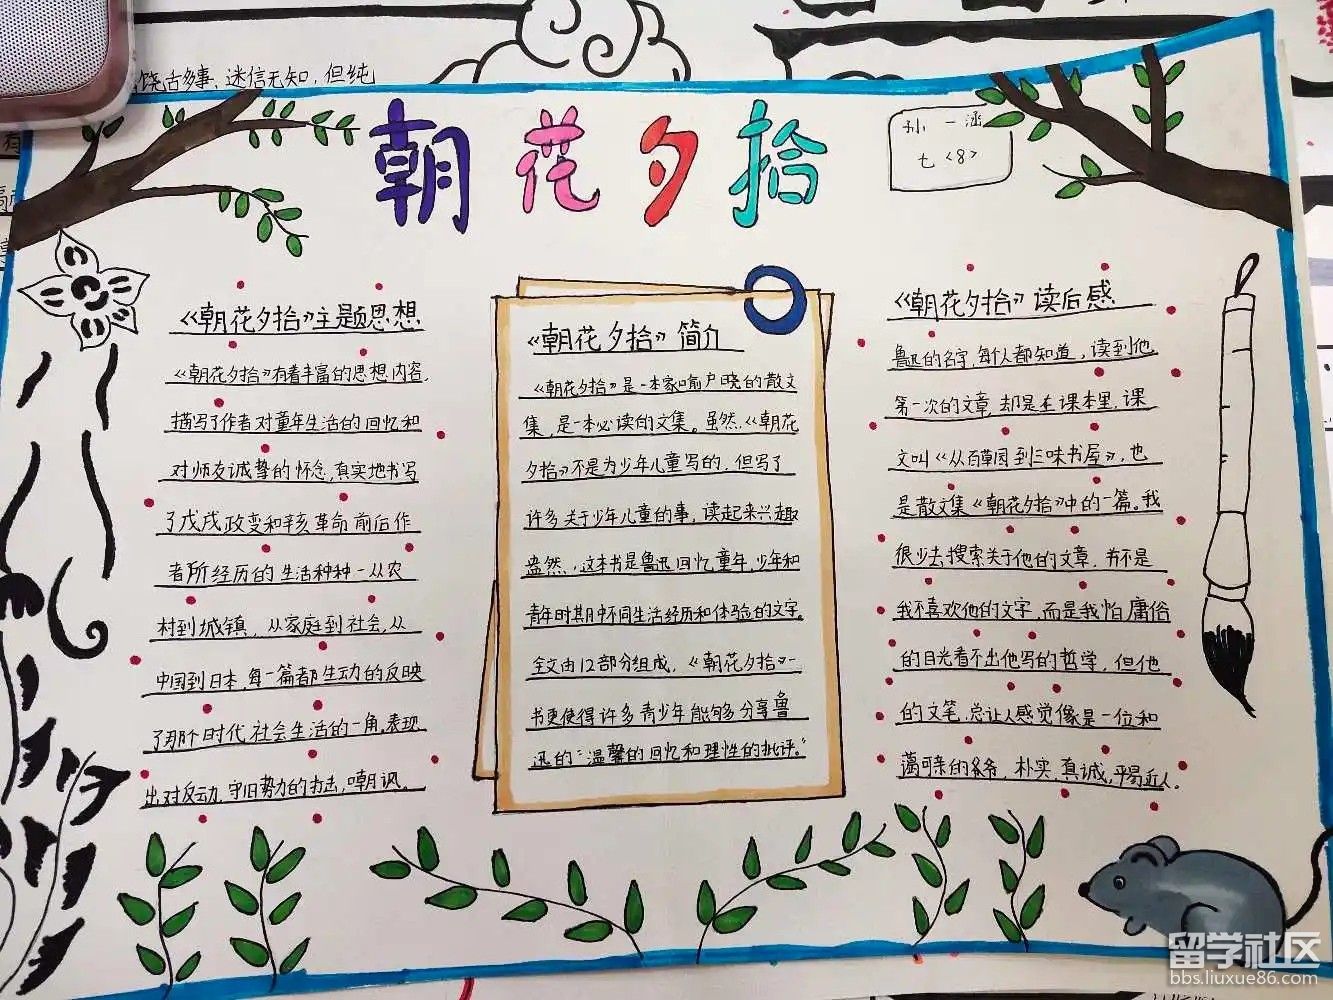 饶古多事,迷信无知,但纯
朝花夕拾
孙一涵
七<8>
《朝花夕拾》主题思想
《朝花夕拾》有着丰富的思想内容,
描写了作者对童年生活的回忆和
对师友诚挚的怀念,真实地书写
了戊戌政变和辛亥革命前后作
者所经历的生活种种-从农
村到城镇,从家庭到社会,从
中国到日本,每一篇都生动的反映
了那个时代社会生活的一角,表现
出对反动,守旧势力的抨击,嘲讽。
《朝花夕拾》简介
《朝花夕拾》是一本家喻户晓的散文
集,是一本必读的文集。虽然,《朝花
夕拾》不是为少年儿童写的,但写了
许多关于少年儿童的事,读起来兴趣
盎然,这本书是鲁迅回忆童年,少年和
青年时期中不同生活经历和体验的文字。
全文由12部分组成,《朝花夕拾》一
书更使得许多青少年能够分享鲁
迅的“温馨的回忆和理性的批评。”
《朝花夕拾》读后感
鲁迅的名字,每个人都知道,读到他
第一次的文章,却是在课本里,课
文叫《从百草园到三味书屋》,也
是散文集《朝花夕拾》中的一篇。我
很少去搜索关于他的文章,并不是
我不喜欢他的文字,而是我怕庸俗
的目光看不出他写的哲学,但他
的文笔,总让人感觉像是一位和
蔼可亲的爷爷,朴实,真诚,平易近人。
留学社区
bbs.liuxue86.com